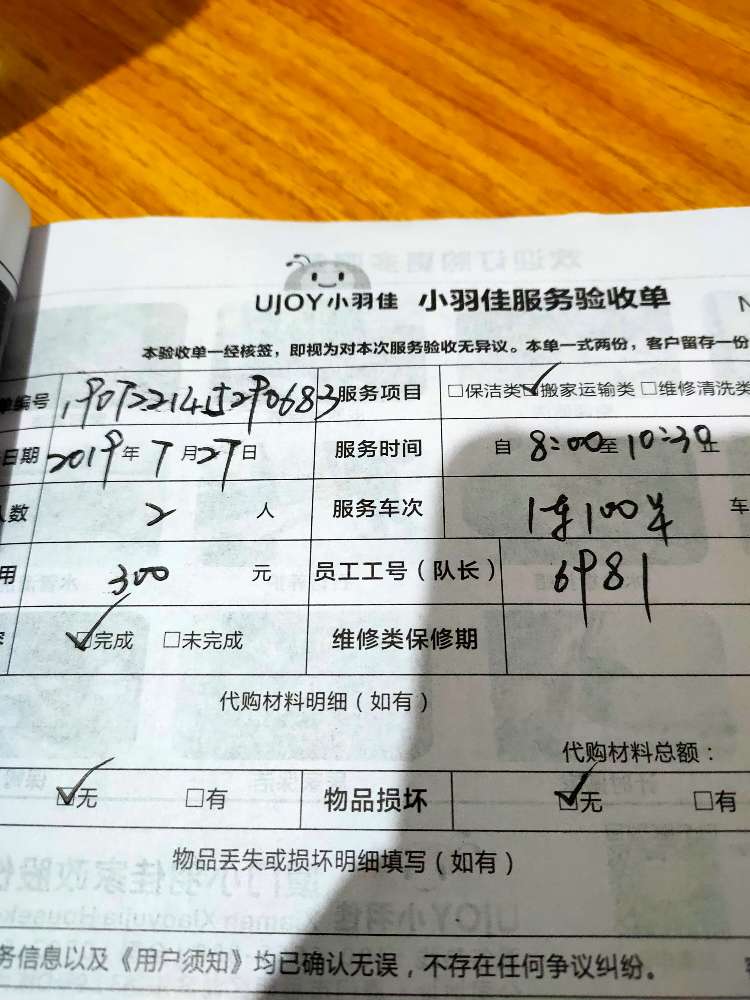 UJOY小羽佳 小羽佳服务验收单
本验收单一经核签，即视为对本次服务验收无异议。本单一式两份，客户留存一份
单编号 190722145290683 服务项目 □保洁类 ☑搬家运输类 □维修清洗类
日期 2019年7月27日 服务时间 自8:00至10:30止
人数 2人 服务车次 1车100半 车
用 300元 员工工号（队长） 6981
☑完成 □未完成 维修类保修期
代购材料明细（如有）
代购材料总额：
☑无 □有 物品损坏 ☑无 □有
物品丢失或损坏明细填写（如有）
务信息以及《用户须知》均已确认无误，不存在任何争议纠纷。